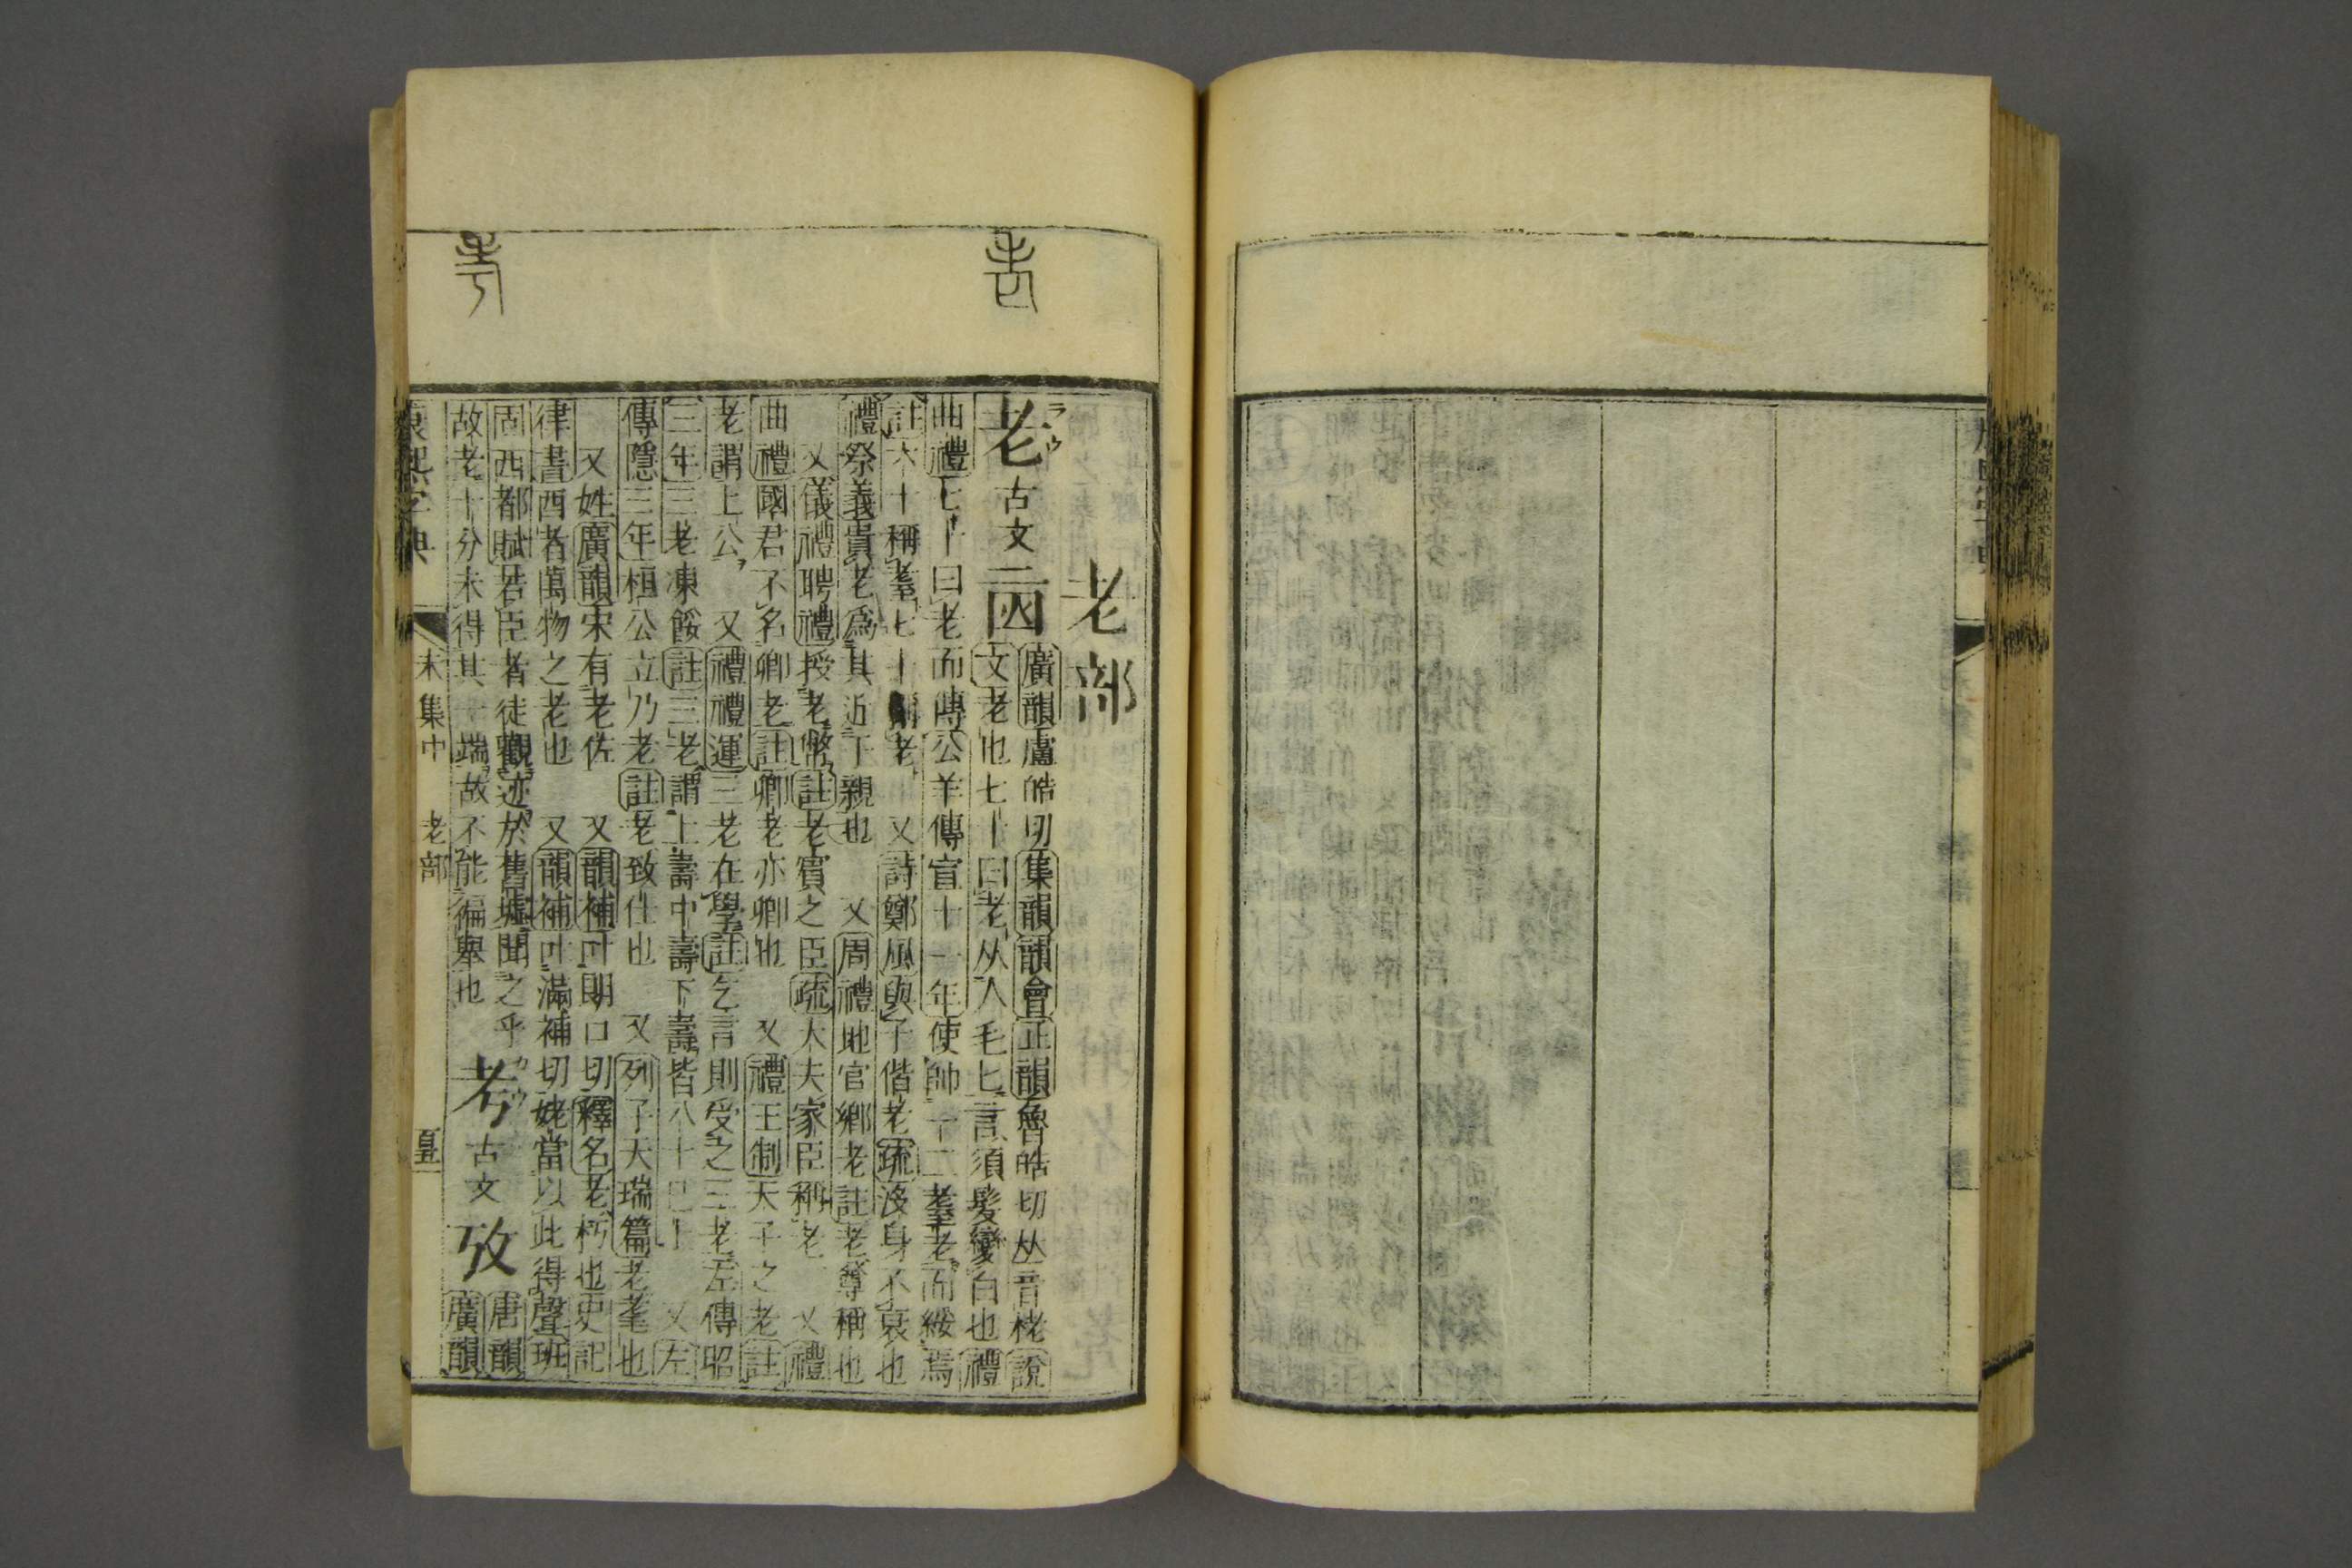 老部
老 ラウ 古文 𠄰 𡇡 廣韻盧皓切集韻韻會正韻魯皓切𠀤音栳說
文老也七十曰老从人毛匕言須髮變白也禮
曲禮七十曰老而傳公羊傳宣十二年使帥一二耋老而綏焉
註六十稱耋七十稱老 又詩鄭風與子偕老疏沒身不衰也
禮祭義貴老爲其近于親也 又周禮地官鄉老註老尊稱也
又儀禮聘禮授老幣註老賓之臣疏大夫家臣稱老 又禮
曲禮國君不名卿老註卿老亦卿也 又禮王制天子之老註
老謂上公 又禮禮運三老在學註乞言則受之三老左傳昭
三年三老凍餒註三老謂上壽中壽下壽皆八十已上 又左
傳隱三年桓公立乃老註老致仕也 又列子天瑞篇老耄也
又姓廣韻宋有老佐 又韻補叶朗口切釋名老朽也史記
律書酉者萬物之老也 又韻補叶滿補切姥當以此得聲班
固西都賦若臣者徒觀迹於舊墟聞之乎
故老十分未得其一端故不能徧舉也 考 カウ 古文 攷 唐韻
廣韻
康熙字典 未集中 老部